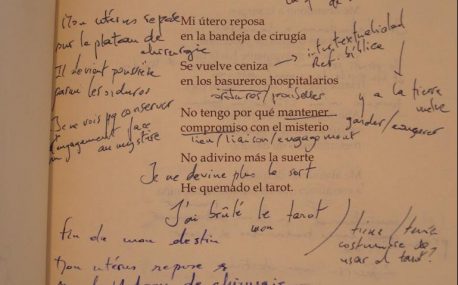 Mon utérus repose
sur le plateau de
chirurgie
Il devient poussière
parmi les ordures
Je ne vois pq conserver
l'engagement face
au mystère
Mi útero reposa
en la bandeja de cirugía
Se vuelve ceniza
en los basureros hospitalarios
ordures/poubelles
No tengo por qué mantener
compromiso con el misterio
lien/liaison/engagement
No adivino más la suerte
Je ne devine plus le sort
He quemado el tarot.
J'ai brûlé le tarot
mon
intertextualidad
Ref. bíblica
y a la tierra
vuelve
garder/conserver
Fin de mon destin
/ tiene / tenía
costumbre de
usar el tarot?
Mon utérus repose